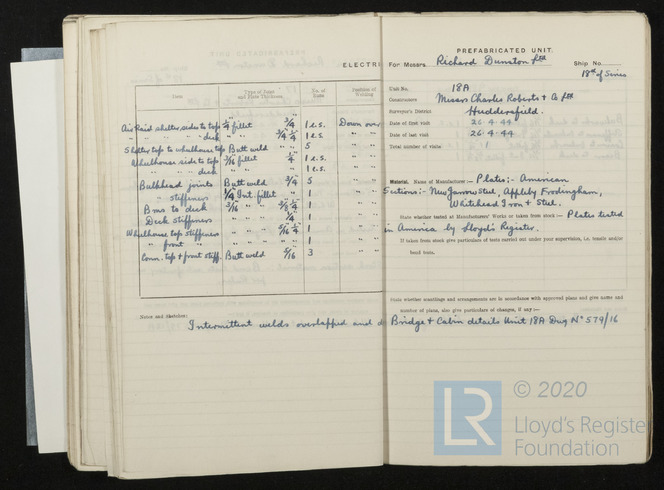 ELECTRI
Item
Type of Joint
and Plate Thickness
No. of
Runs
Position of
Welding
Air Raid shelter sides to top 1/4" fillet 3/4 1 e.s. Down over
" " " " deck " 3/4 1/4 1 e.s " "
Shelter top to wheelhouse top Butt weld " 5 " "
Wheelhouse side to top 3/16 fillet 1/4 1 e.s. " "
" " " deck " " " 1 e.s. " "
Bulkhead joints Butt weld 3/4 5 " "
" stiffeners 1/4 Int. fillet " 1 " "
Bras to deck 3/16 " " 1 " "
Deck stiffeners " " 1/4 1 " "
Wheelhouse top stiffeners " " 5/16 1/4 1 " "
" front " " " " 1 " "
Conn. top & front stiff. Butt weld 5/16 3 " "
Notes and Sketches:
Intermittent welds overlapped and
PREFABRICATED UNIT.
For Messrs. Richard Dunston Ltd Ship No.
18th of Series
Unit No. 18A
Constructors Messrs Charles Roberts & Co Ltd
Surveyor's District Huddersfield.
Date of first visit 26.4.44
Date of last visit 26.4.44
Total number of visits 1
Material. Name of Manufacturer :— Plates:- American
Sections:- New Jarrow Steel, Appleby Frodingham,
Whitehead Iron & Steel.
State whether tested at Manufacturers' Works or taken from stock :— Plates tested
in America by Lloyd's Register.
If taken from stock give particulars of tests carried out under your supervision, i.e. tensile and/or
bend tests.
State whether scantlings and arrangements are in accordance with approved plans and give name and
number of plans, also give particulars of changes, if any :—
Bridge & Cabin details Unit 18A Dwg No 579/16
© 2020
LR
Lloyd's Register
Foundation